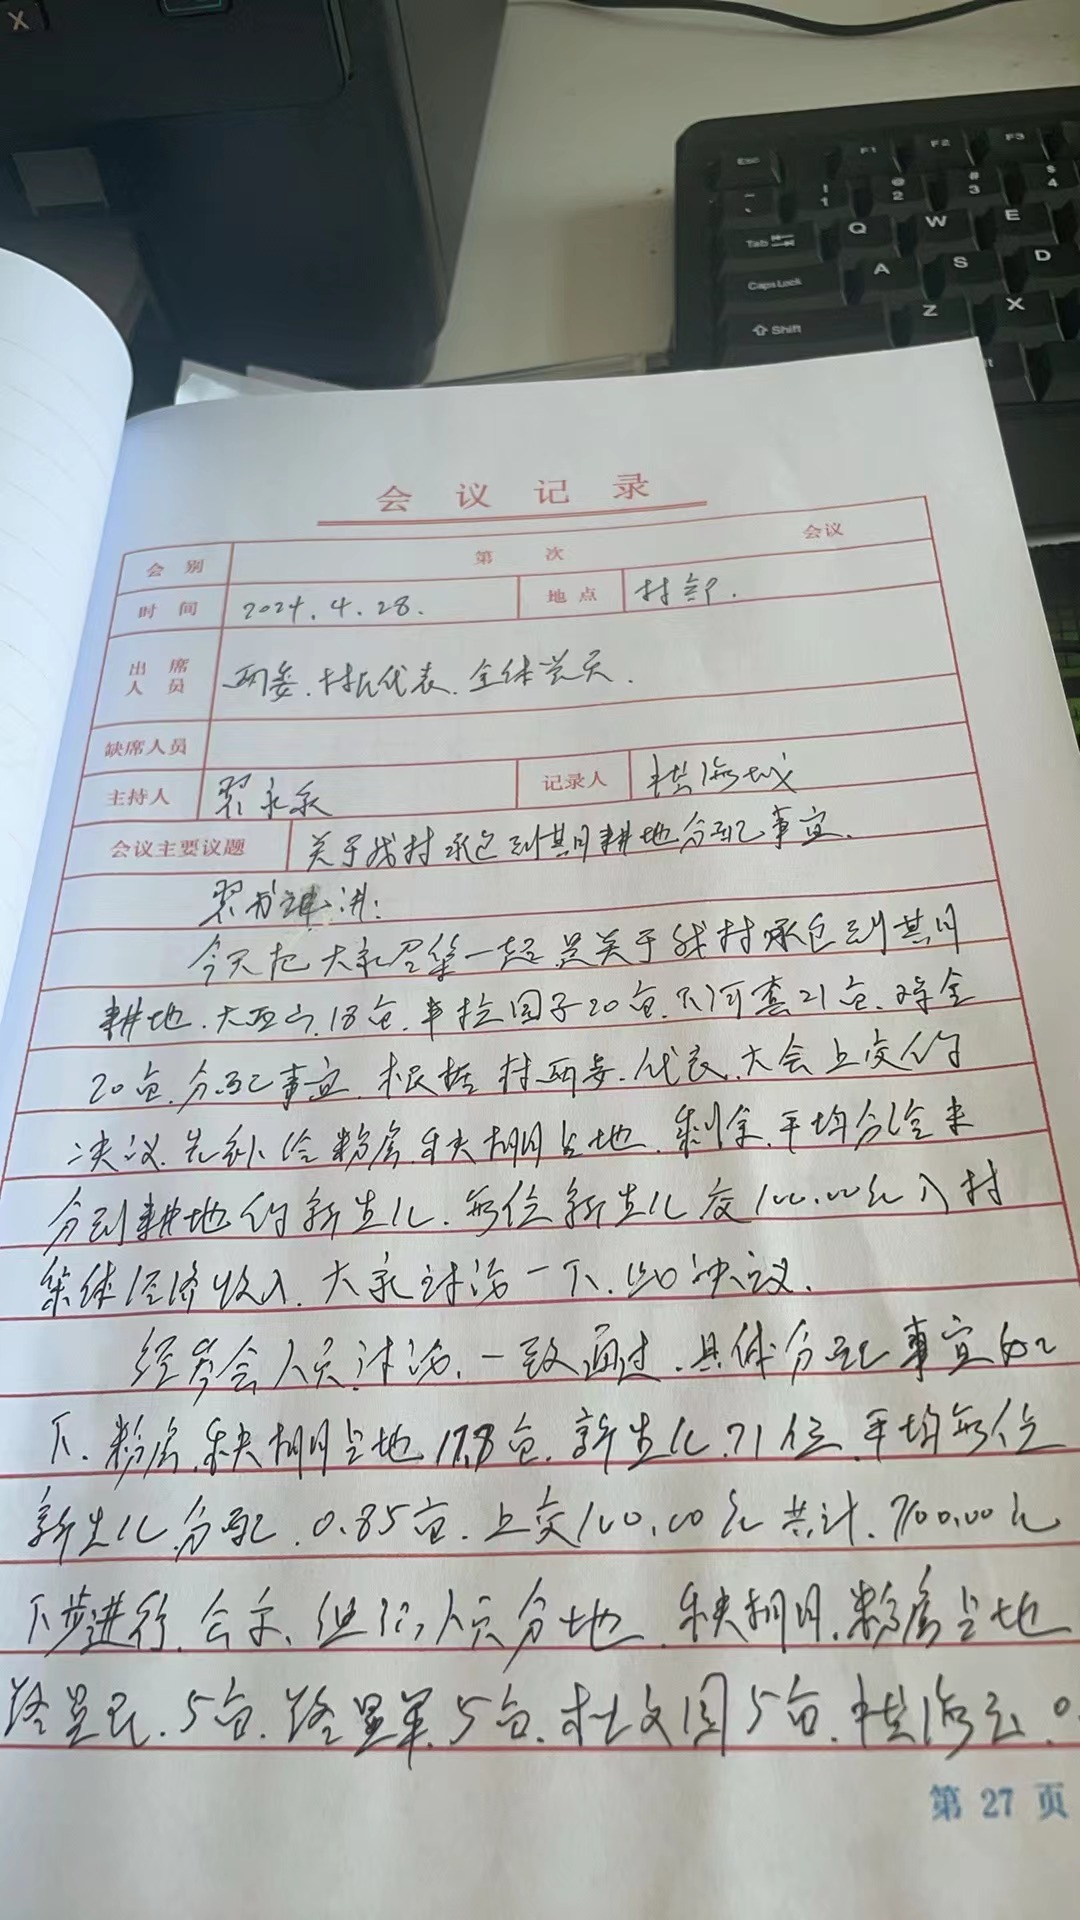 X
Esc F1 F2 F3
! 1 @ 2 # 3 $ 4
Tab Q W E
Caps Lock A S D
Shift Z X
会 议 记 录
会 别 第 次 会议
时 间 2024.4.28. 地 点 村部.
出 席 人 员 两委.村民代表.全体党员.
缺席人员
主持人 翟永永 记录人 海成
会议主要议题 关于我村承包到期耕地分配事宜.
翟书记讲:
今天把大家召集一起是关于我村承包到期
耕地.大西 18亩.车拉园子20亩. 21亩.
20亩.分配事宜.根据村两委.代表.大会上交的
决议.先补给粉房.秧棚占地.剩余.平均分给未
分到耕地的新生儿.每位新生儿交100.00元入村
集体经济收入.大家讨论一下.出决议.
经参会人员讨论.一致通过.具体分配事宜如
下.粉房.秧棚占地.17.8亩.新生儿.71位.平均每位
新生儿分配.0.85亩.上交100.00元共计.7100.00元
下步进行.公示.组织人员分地.秧棚.粉房占地
.5亩. 5亩.杜文国5亩. 海 .0.
第 27 页